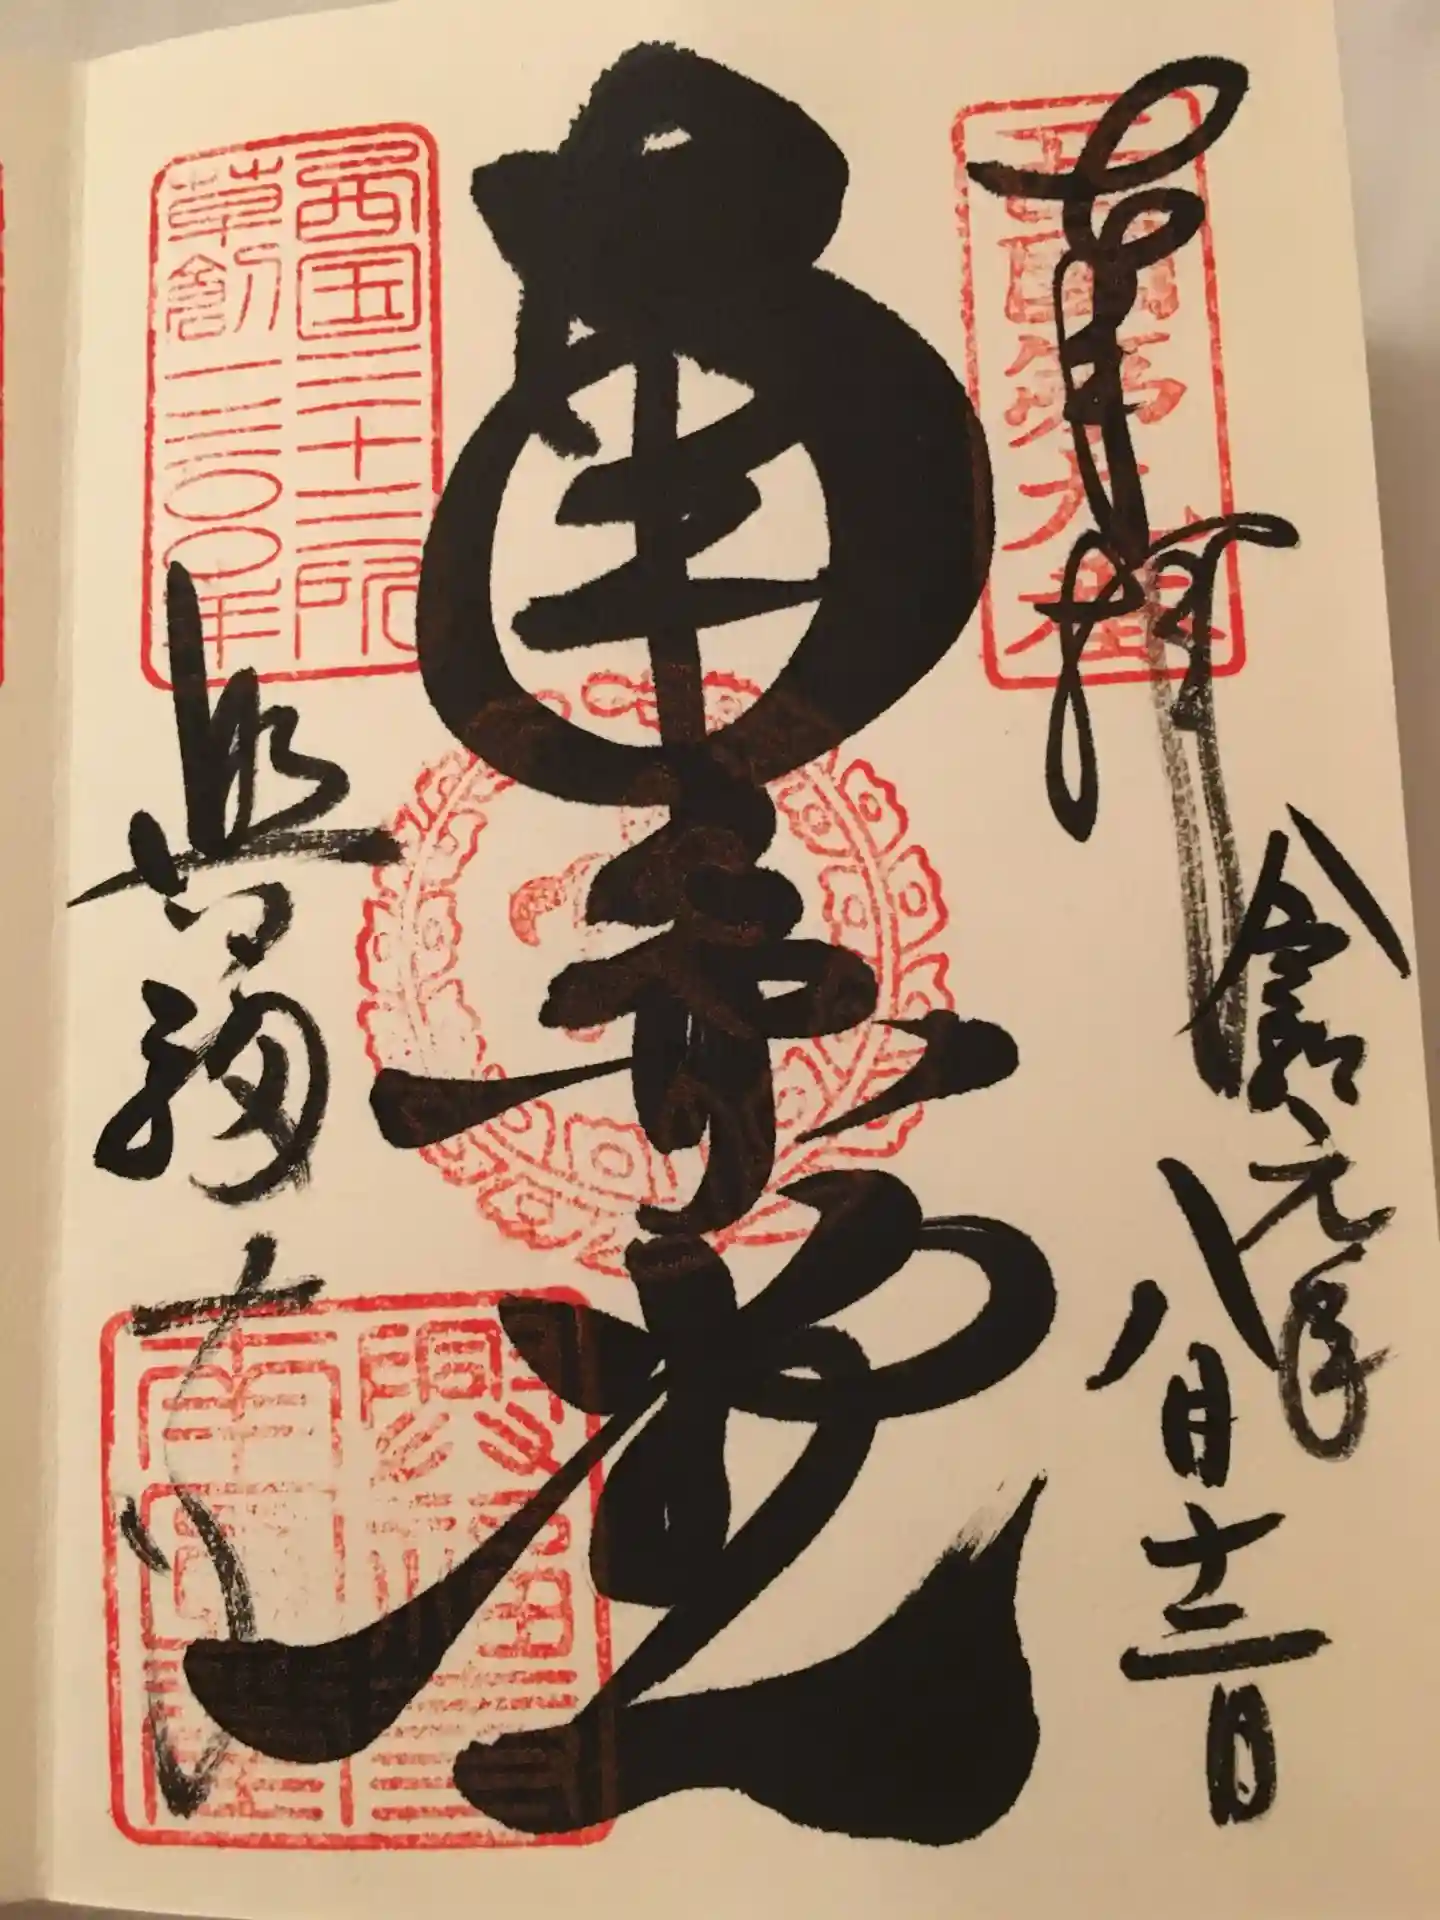 西国第九番
奉拝
令和元年
八月十二日
南圓堂
西国三十三所
草創一三〇〇年
興福寺